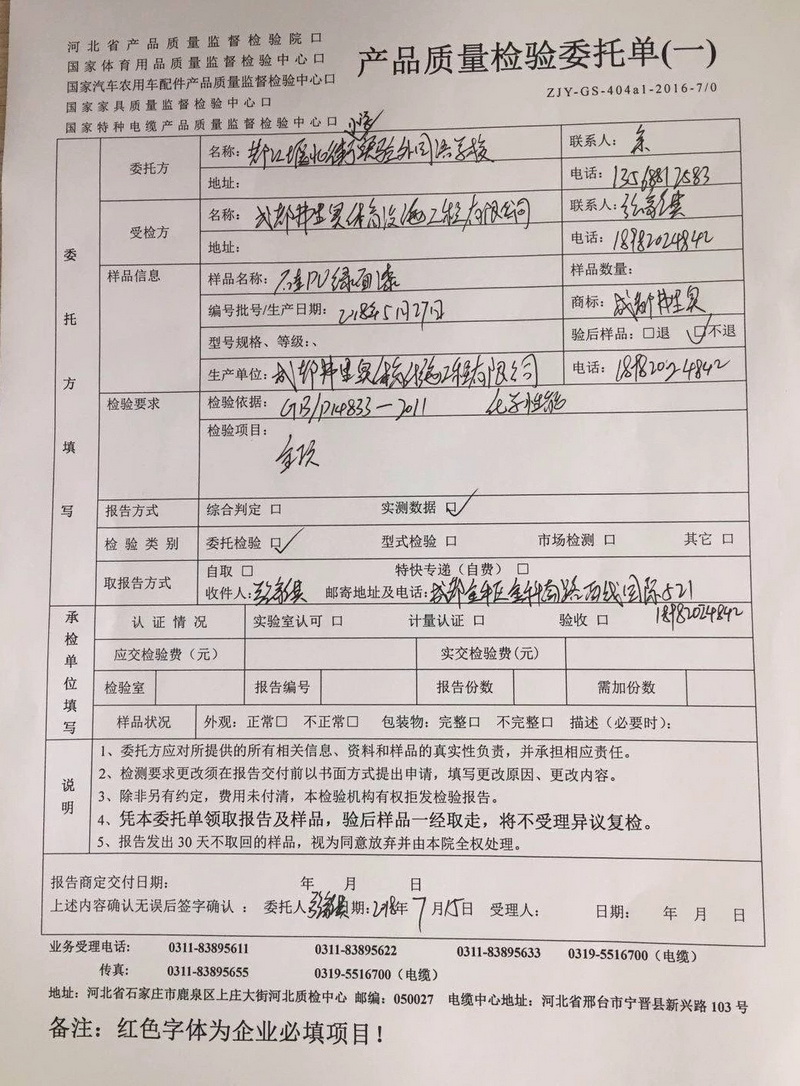 河北省产品质量监督检验院口
国家体育用品质量监督检验中心口
国家汽车农用车配件产品质量监督检验中心口
国家家具质量监督检验中心口
国家特种电缆产品质量监督检验中心口
产品质量检验委托单(一)
ZJY-GS-404a1-2016-7/0
委托方填写
委托方
名称：都江堰北街实验外国语学校
联系人：余
地址：
电话：13568812583
受检方
名称：成都弗里奥体育设施工程有限公司
联系人：
地址：
电话：18982024842
样品信息
样品名称：硅PU绿面漆
样品数量：
编号批号/生产日期：2018年5月27日
商标：成都弗里奥
型号规格、等级：、
验后样品：□退 □不退
生产单位：成都弗里奥体育设施工程有限公司
电话：18982024842
检验要求
检验依据：GB/T14833—2011 化学性能
检验项目：
全项
报告方式
综合判定 口
实测数据 口
检验类别
委托检验 口
型式检验 口
市场检测 口
其它 口
取报告方式
自取 口
特快专递（自费）口
收件人：
邮寄地址及电话：成都金牛区金科南路西线国际521
18982024842
承检单位填写
认证情况
实验室认可 口
计量认证 口
验收 口
应交检验费（元）
实交检验费(元)
检验室
报告编号
报告份数
需加份数
样品状况
外观：正常□ 不正常口 包装物：完整口 不完整口 描述（必要时）：
说明
1、委托方应对所提供的所有相关信息、资料和样品的真实性负责，并承担相应责任。
2、检测要求更改须在报告交付前以书面方式提出申请，填写更改原因、更改内容。
3、除非另有约定，费用未付清，本检验机构有权拒发检验报告。
4、凭本委托单领取报告及样品，验后样品一经取走，将不受理异议复检。
5、报告发出 30 天不取回的样品，视为同意放弃并由本院全权处理。
报告商定交付日期： 年 月 日
上述内容确认无误后签字确认： 委托人 期：2018年7月15日 受理人： 日期： 年 月 日
业务受理电话： 0311-83895611 0311-83895622 0311-83895633 0319-5516700（电缆）
传真： 0311-83895655 0319-5516700（电缆）
地址：河北省石家庄市鹿泉区上庄大街河北质检中心 邮编：050027 电缆中心地址：河北省邢台市宁晋县新兴路 103 号
备注：红色字体为企业必填项目！